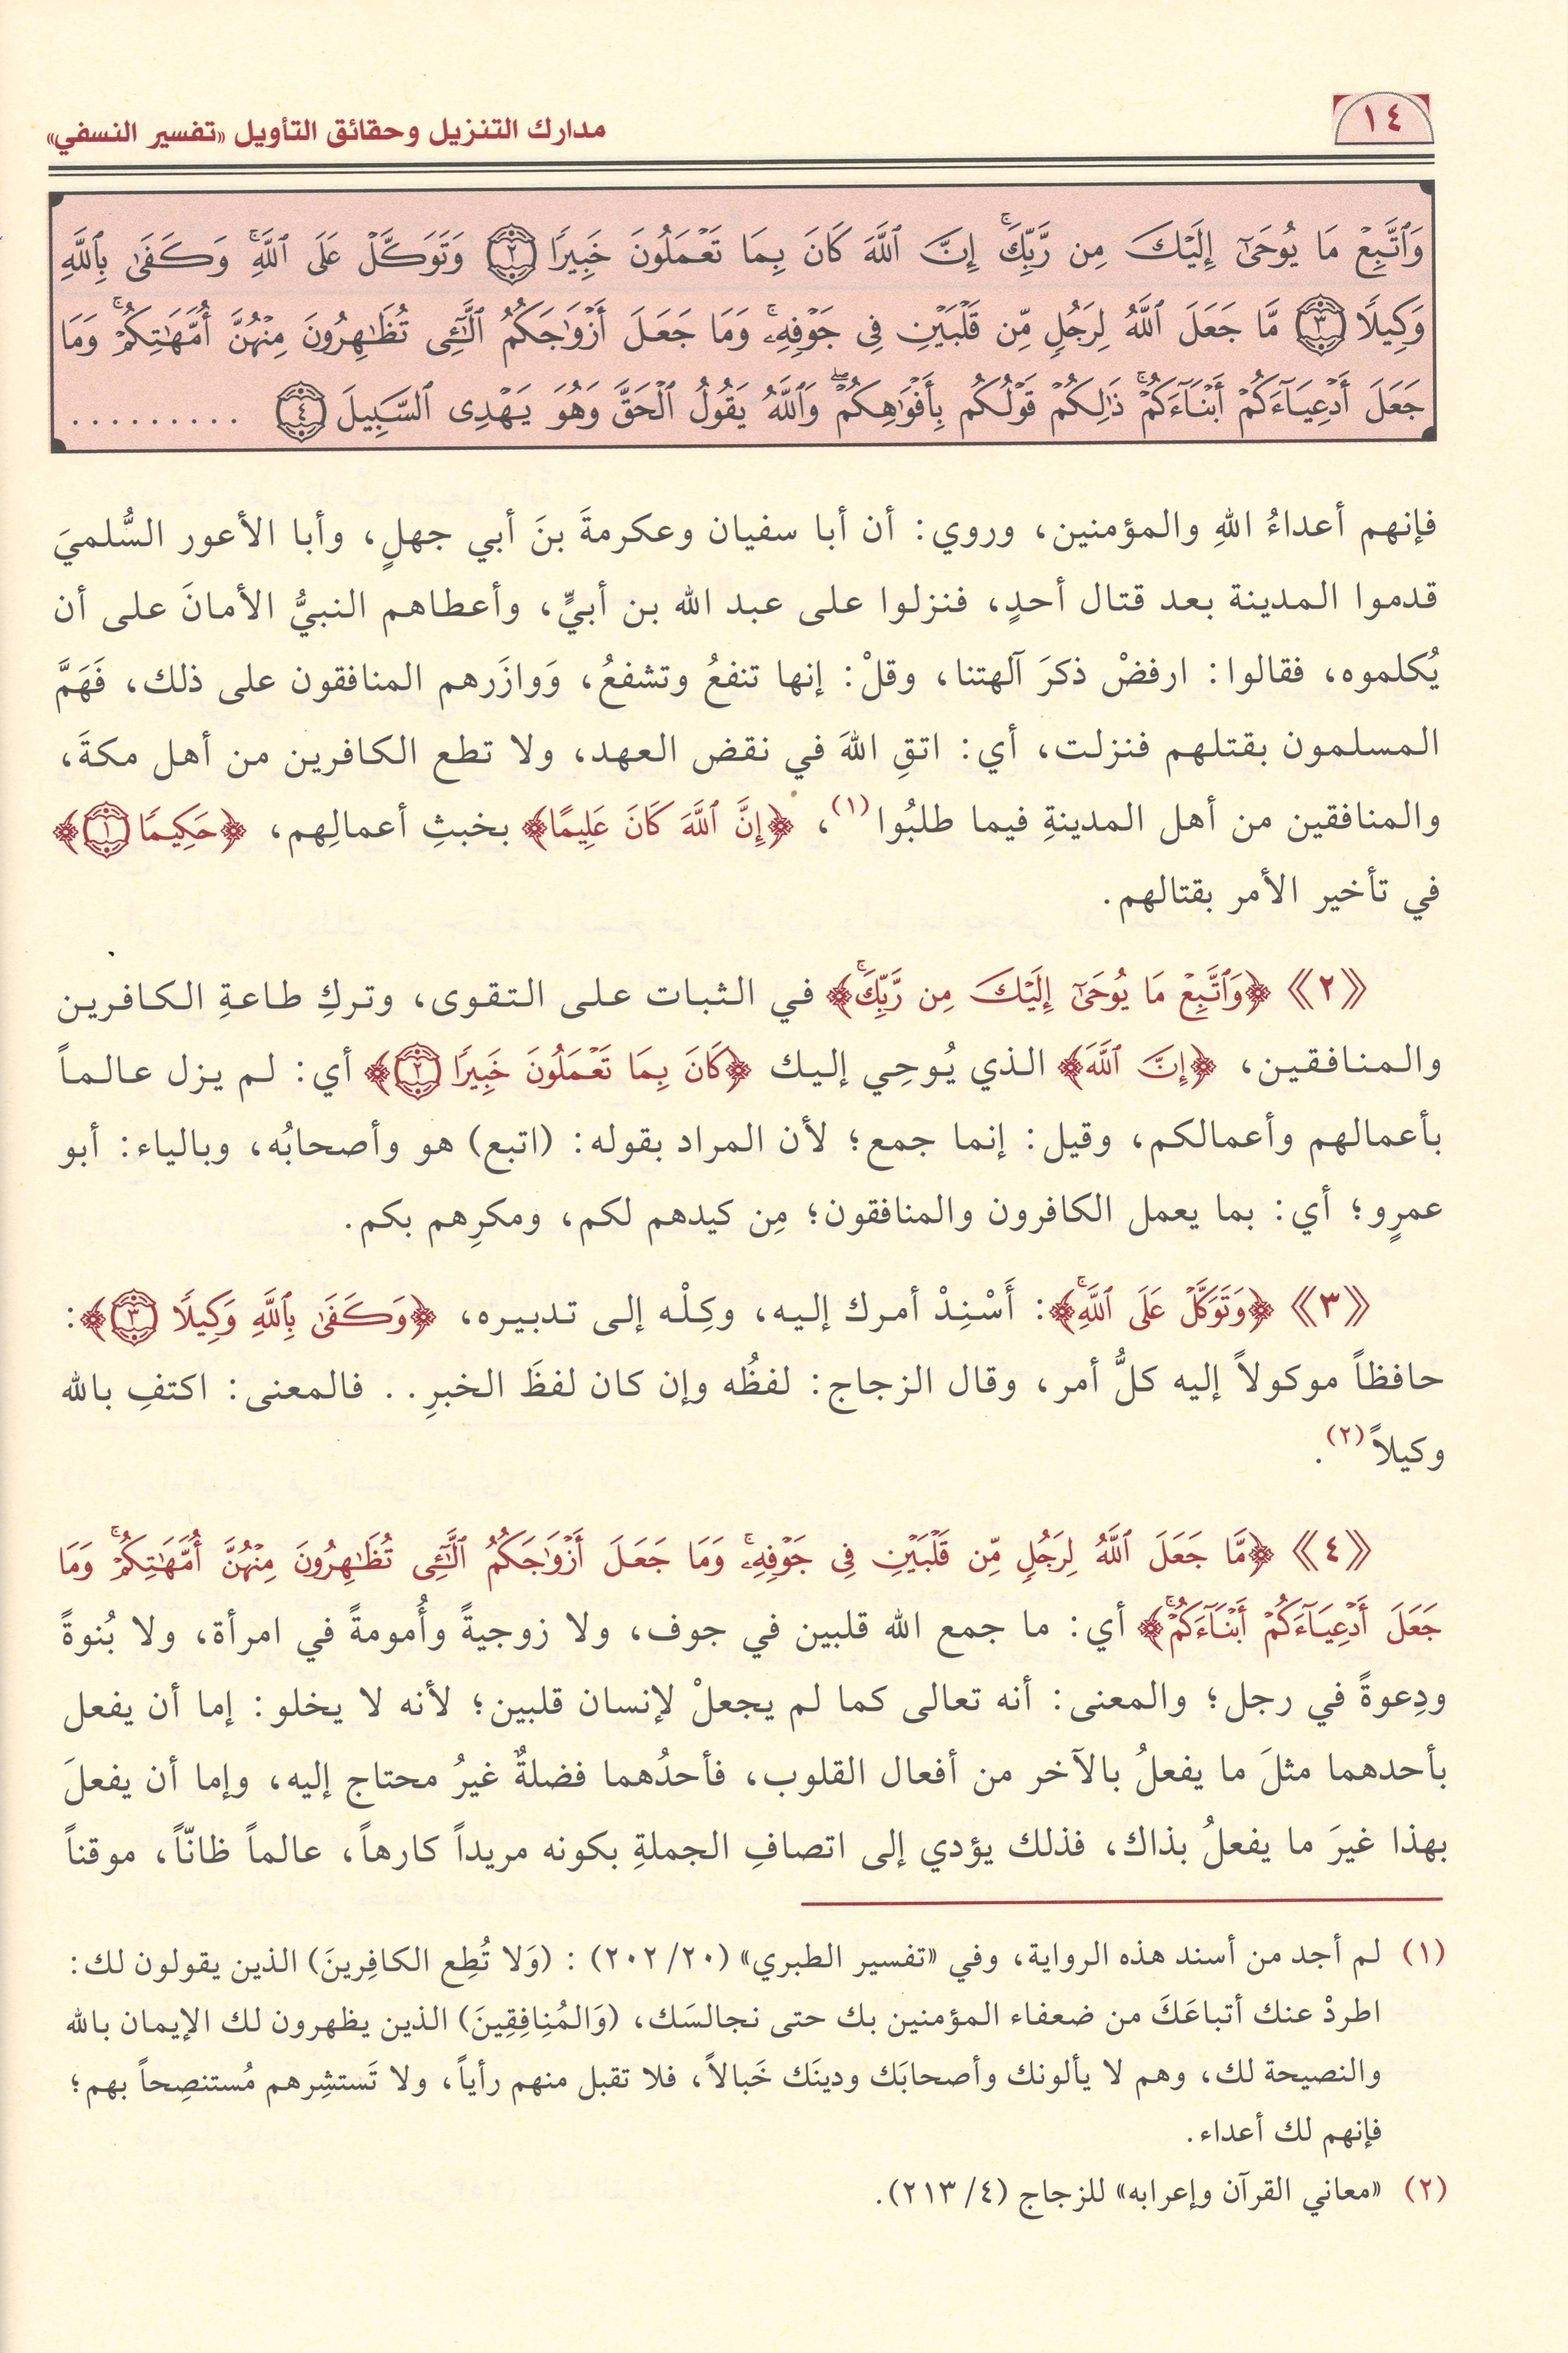 ١٤
مدارك التنزيل وحقائق التأويل «تفسير النسفي»
وَٱتَّبِعۡ مَا يُوحَىٰٓ إِلَيۡكَ مِن رَّبِّكَۚ إِنَّ ٱللَّهَ كَانَ بِمَا تَعۡمَلُونَ خَبِيرٗا ٢ وَتَوَكَّلۡ عَلَى ٱللَّهِۚ وَكَفَىٰ بِٱللَّهِ
وَكِيلٗا ٣ مَّا جَعَلَ ٱللَّهُ لِرَجُلٖ مِّن قَلۡبَيۡنِ فِي جَوۡفِهِۦۚ وَمَا جَعَلَ أَزۡوَٰجَكُمُ ٱلَّٰٓـِٔي تُظَٰهِرُونَ مِنۡهُنَّ أُمَّهَٰتِكُمۡۚ وَمَا
جَعَلَ أَدۡعِيَآءَكُمۡ أَبۡنَآءَكُمۡۚ ذَٰلِكُمۡ قَوۡلُكُم بِأَفۡوَٰهِكُمۡۖ وَٱللَّهُ يَقُولُ ٱلۡحَقَّ وَهُوَ يَهۡدِي ٱلسَّبِيلَ ٤ .........
فإنهم أعداءُ اللهِ والمؤمنين، وروي: أن أبا سفيان وعكرمةَ بنَ أبي جهلٍ، وأبا الأعور السُّلميَ
قدموا المدينة بعد قتال أحدٍ، فنزلوا على عبد الله بن أبيٍّ، وأعطاهم النبيُّ الأمانَ على أن
يُكلموه، فقالوا: ارفضْ ذكرَ آلهتنا، وقلْ: إنها تنفعُ وتشفعُ، وَوازَرهم المنافقون على ذلك، فَهَمَّ
المسلمون بقتلهم فنزلت، أي: اتقِ اللهَ في نقض العهد، ولا تطع الكافرين من أهل مكةَ،
والمنافقين من أهل المدينةِ فيما طلبُوا(١)، ﴿إِنَّ ٱللَّهَ كَانَ عَلِيمًا﴾ بخبثِ أعمالِهم، ﴿حَكِيمٗا ١﴾
في تأخير الأمر بقتالهم.
《٢》 ﴿وَٱتَّبِعۡ مَا يُوحَىٰٓ إِلَيۡكَ مِن رَّبِّكَۚ﴾ في الثبات على التقوى، وتركِ طاعةِ الكافرين
والمنافقين، ﴿إِنَّ ٱللَّهَ﴾ الذي يُوحِي إليك ﴿كَانَ بِمَا تَعۡمَلُونَ خَبِيرٗا ٢﴾ أي: لم يزل عالماً
بأعمالهم وأعمالكم، وقيل: إنما جمع؛ لأن المراد بقوله: (اتبع) هو وأصحابُه، وبالياء: أبو
عمرٍو؛ أي: بما يعمل الكافرون والمنافقون؛ مِن كيدهم لكم، ومكرِهم بكم.
《٣》 ﴿وَتَوَكَّلۡ عَلَى ٱللَّهِۚ﴾: أَسْنِدْ أمرك إليه، وكِلْه إلى تدبيره، ﴿وَكَفَىٰ بِٱللَّهِ وَكِيلٗا ٣﴾:
حافظاً موكولاً إليه كلُّ أمر، وقال الزجاج: لفظُه وإن كان لفظَ الخبرِ.. فالمعنى: اكتفِ بالله
وكيلاً(٢).
《٤》 ﴿مَّا جَعَلَ ٱللَّهُ لِرَجُلٖ مِّن قَلۡبَيۡنِ فِي جَوۡفِهِۦۚ وَمَا جَعَلَ أَزۡوَٰجَكُمُ ٱلَّٰٓـِٔي تُظَٰهِرُونَ مِنۡهُنَّ أُمَّهَٰتِكُمۡۚ وَمَا
جَعَلَ أَدۡعِيَآءَكُمۡ أَبۡنَآءَكُمۡۚ﴾ أي: ما جمع الله قلبين في جوف، ولا زوجيةً وأُمومةً في امرأة، ولا بُنوةً
ودِعوةً في رجل؛ والمعنى: أنه تعالى كما لم يجعلْ لإنسان قلبين؛ لأنه لا يخلو: إما أن يفعل
بأحدهما مثلَ ما يفعلُ بالآخر من أفعال القلوب، فأحدُهما فضلةٌ غيرُ محتاج إليه، وإما أن يفعلَ
بهذا غيرَ ما يفعلُ بذاك، فذلك يؤدي إلى اتصافِ الجملةِ بكونه مريداً كارهاً، عالماً ظانّاً، موقناً
(١) لم أجد من أسند هذه الرواية، وفي «تفسير الطبري» (٢٠/ ٢٠٢) : (وَلا تُطِع الكافِرينَ) الذين يقولون لك:
اطردْ عنك أتباعَكَ من ضعفاء المؤمنين بك حتى نجالسَك، (وَالمُنِافِقِينَ) الذين يظهرون لك الإيمان بالله
والنصيحة لك، وهم لا يألونك وأصحابَك ودينَك خَبالاً، فلا تقبل منهم رأياً، ولا تَستشِرهم مُستنصِحاً بهم؛
فإنهم لك أعداء.
(٢) «معاني القرآن وإعرابه» للزجاج (٤/ ٢١٣).